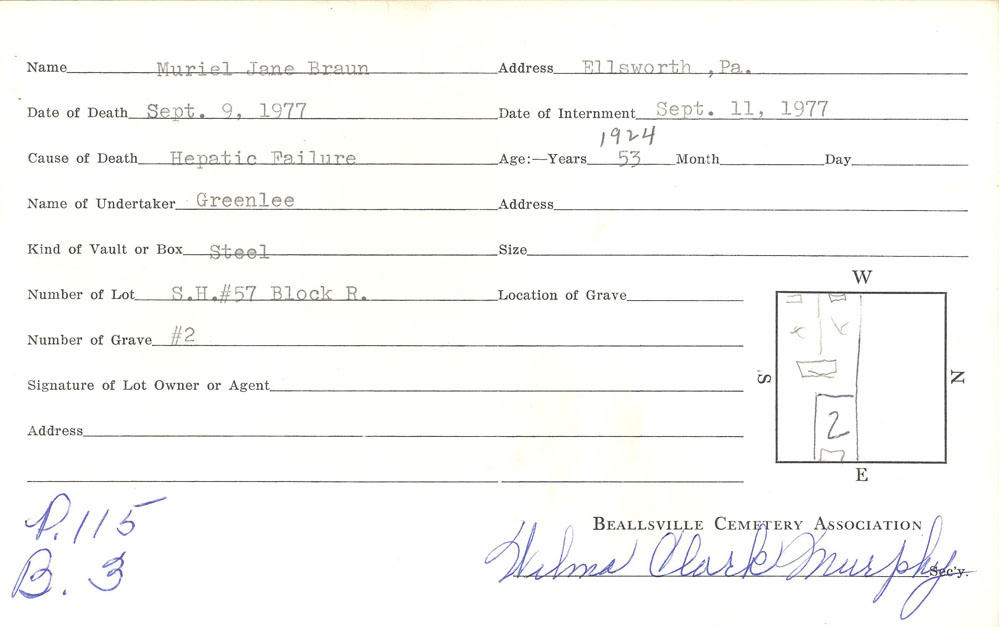 Name Muriel Jane Braun Address Ellsworth ,Pa.
Date of Death Sept. 9, 1977 Date of Internment Sept. 11, 1977
1924
Cause of Death Hepatic Failure Age:—Years 53 Month Day
Name of Undertaker Greenlee Address
Kind of Vault or Box Steel Size
W
Number of Lot S.H.#57 Block R. Location of Grave
Number of Grave #2
S N
Signature of Lot Owner or Agent
2
Address
E
P.115
Beallsville Cemetery Association
B. 3
Wilma Clark Murphy Sec'y.